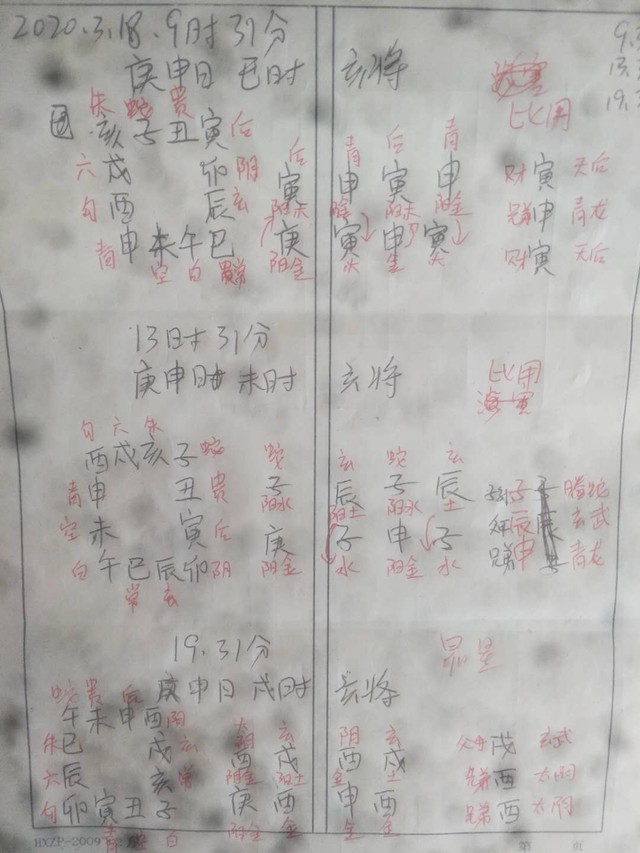 2020.3.18.9时31分
9.
庚申日 巳时 亥将
13.
19.
比用
朱 蛇 贵
亥子丑寅 后
六 戌 卯 阴
勾 酉 辰 玄
青 申未午巳
空 白
后 青 后 青
寅 申 寅 申
阳木 阳木 阳金
庚 寅 申 寅
阳金 木 金 木
财 寅 天后
兄弟 申 青龙
财 寅 天后
13时31分
庚申日 未时 亥将
比用
勾 六 朱
酉戌亥子 蛇
青 申 丑 贵
空 未 寅 后
白 午巳辰卯 阴
常 玄
蛇 玄 蛇 玄
子 辰 子 辰
阳水 阳土 阳水 土
庚 子 申 子
阳金 水 阳金 水
子 螣蛇
辰 玄武
兄弟 申 青龙
19.31分
昴星
庚申日 戌时 亥将
蛇 贵 后
午未申酉 阴
朱 巳 戌 玄
六 辰 亥 常
勾 卯寅丑子
青 白
玄 阴 玄
酉 戌 酉 戌
阳土 金 土
庚 酉 申 酉
阳金 金 金 金
父母 戌 玄武
兄弟 酉 太阴
兄弟 酉 太阴
HXZP-2009
第 页